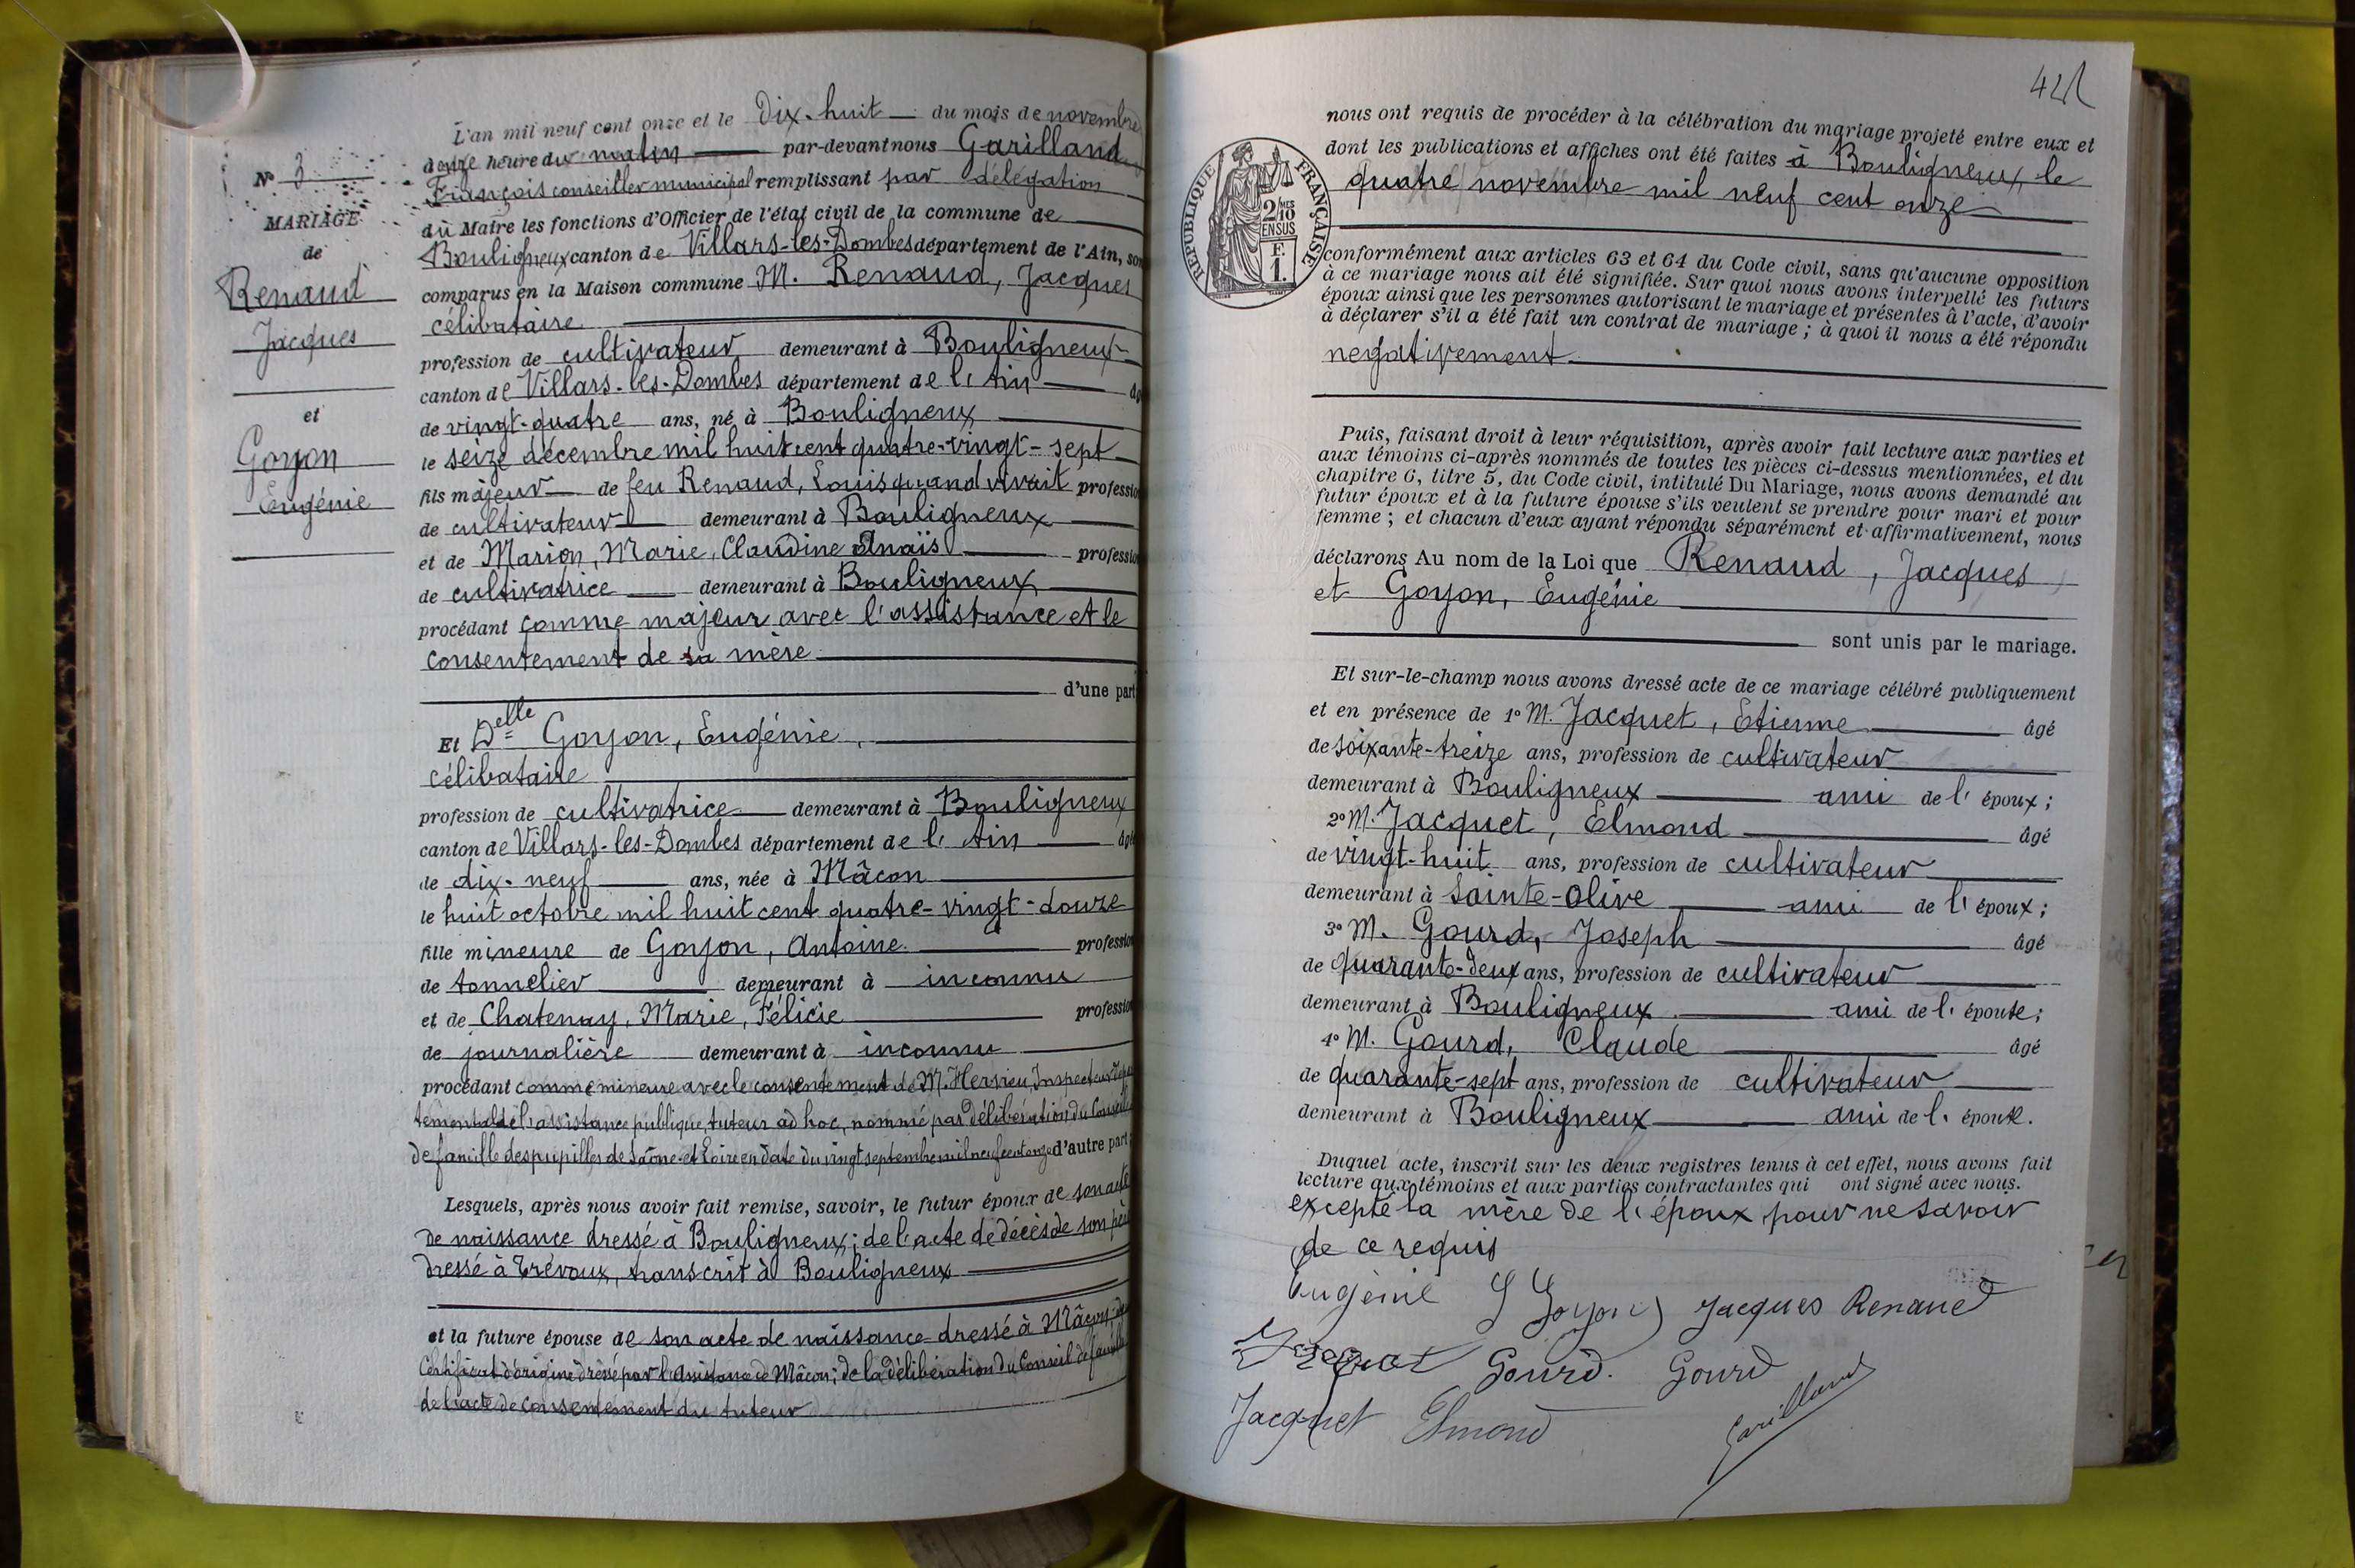 L'an mil neuf cent onze et le Dix-huit du mois de novembre
onze heure du matin par-devant nous Garilland
François conseiller municipal remplissant par délégation
du Maire les fonctions d'Officier de l'état civil de la commune de
Bouligneux canton de Villars-les-Dombes département de l'Ain, son
comparus en la Maison commune M. Renaud, Jacques
célibataire
profession de cultivateur demeurant à Bouligneux
canton de Villars-les-Dombes département de l'Ain âg
de vingt-quatre ans, né à Bouligneux
le seize décembre mil huit cent quatre-vingt-sept
fils majeur de feu Renaud, Louis quand vivait professio
de cultivateur demeurant à Bouligneux
et de Marion, Marie, Claudine Anaïs professio
de cultivatrice demeurant à Bouligneux
procédant comme majeur avec l'assistance et le
consentement de sa mère
d'une part
Et Delle Goyon, Eugénie,
célibataire
profession de cultivatrice demeurant à Bouligneux
canton de Villars-les-Dombes département de l'Ain âgé
de dix-neuf ans, née à Mâcon
le huit octobre mil huit cent quatre-vingt-douze
fille mineure de Goyon, Antoine profession
de tonnelier demeurant à inconnu
et de Chatenay, Marie, Félicie profession
de journalière demeurant à inconnu
procédant comme mineure avec le consentement de M. Hersieu, Inspecteur dépar
temental de l'assistance publique, tuteur ad hoc, nommé par délibération du Conseil
de famille des pupilles de Saône-et-Loire en date du vingt septembre mil neuf cent onze d'autre part
Lesquels, après nous avoir fait remise, savoir, le futur époux de son acte
de naissance dressé à Bouligneux; de l'acte de décès de son père
dressé à Trévoux, transcrit à Bouligneux
et la future épouse de son acte de naissance dressé à Mâcon; du
Certificat d'origine dressé par l'Assistance de Mâcon; de la délibération du Conseil de famille
de l'acte de consentement du tuteur
N° 3
MARIAGE
de
Renaud
Jacques
et
Goyon
Eugénie
nous ont requis de procéder à la célébration du mariage projeté entre eux et
dont les publications et affiches ont été faites à Bouligneux, le
quatre novembre mil neuf cent onze
RÉPUBLIQUE FRANÇAISE
2/10 MES
EN SUS
F.
1.
conformément aux articles 63 et 64 du Code civil, sans qu'aucune opposition
à ce mariage nous ait été signifiée. Sur quoi nous avons interpellé les futurs
époux ainsi que les personnes autorisant le mariage et présentes à l'acte, d'avoir
à déclarer s'il a été fait un contrat de mariage ; à quoi il nous a été répondu
negativement
Puis, faisant droit à leur réquisition, après avoir fait lecture aux parties et
aux témoins ci-après nommés de toutes les pièces ci-dessus mentionnées, et du
chapitre 6, titre 5, du Code civil, intitulé Du Mariage, nous avons demandé au
futur époux et à la future épouse s'ils veulent se prendre pour mari et pour
femme ; et chacun d'eux ayant répondu séparément et affirmativement, nous
déclarons Au nom de la Loi que Renaud, Jacques
et Goyon, Eugénie
sont unis par le mariage.
Et sur-le-champ nous avons dressé acte de ce mariage célébré publiquement
et en présence de 1° M. Jacquet, Etienne âgé
de soixante-treize ans, profession de cultivateur
demeurant à Bouligneux ami de l'époux ;
2° M. Jacquet, Elmond âgé
de vingt-huit ans, profession de cultivateur
demeurant à Sainte-Olive ami de l'époux ;
3° M. Gourd, Joseph âgé
de quarante-deux ans, profession de cultivateur
demeurant à Bouligneux ami de l'épouse ;
4° M. Gourd, Claude âgé
de quarante-sept ans, profession de cultivateur
demeurant à Bouligneux ami de l'épouse.
Duquel acte, inscrit sur les deux registres tenus à cet effet, nous avons fait
lecture aux témoins et aux parties contractantes qui ont signé avec nous.
excepté la mère de l'époux pour ne savoir
de ce requis
Eugénie Goyon Jacques Renaud
Jacquet Gourd. Gourd
Jacquet Elmond Garilland